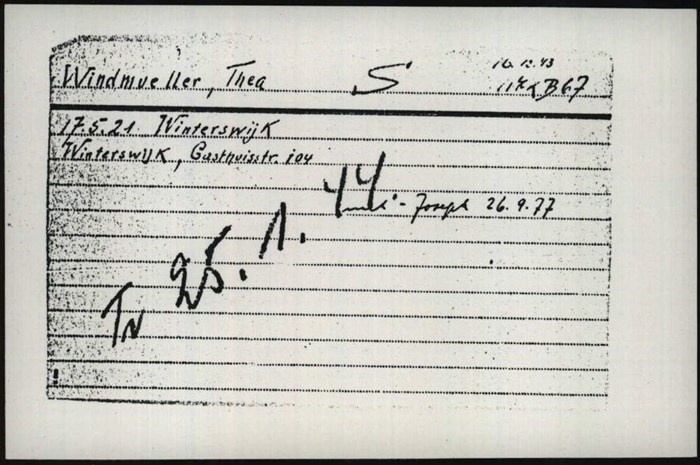 16.12.43
Windmueller, Thea S B67
17.5.21 Winterswijk
Winterswijk, Gasthuisstr. 104
Joseph 26.9.77
TN 25.1.44